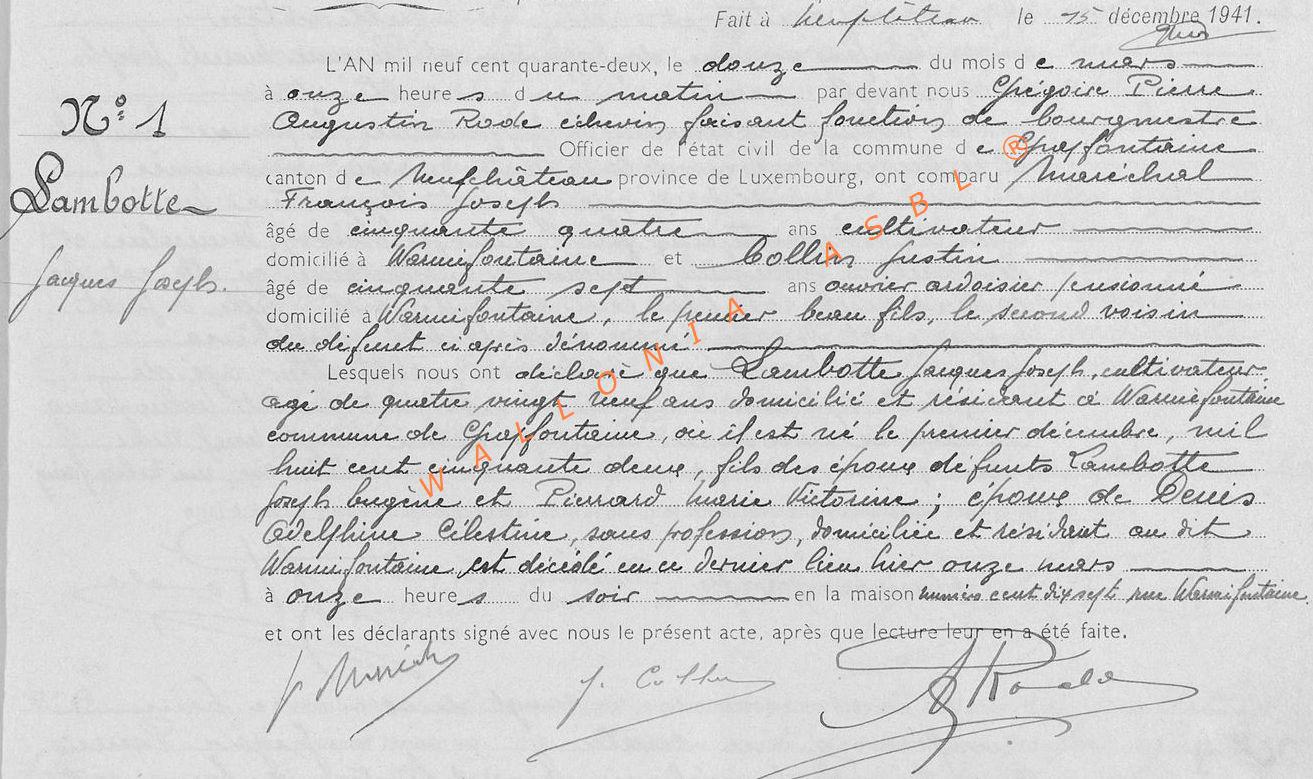 Fait à Neufchâteau le 15 décembre 1941.
L'AN mil neuf cent quarante-deux, le douze du mois de mars
à onze heures du matin par devant nous Grégoire Pierre
N° 1
Augustin Rode échevin faisant fonctions de bourgmestre
Officier de l'état civil de la commune de Grapfontaine
canton de Neufchâteau province de Luxembourg, ont comparu Maréchal
Lambotte
François Joseph
âgé de cinquante quatre ans cultivateur
domicilié à Warmifontaine et Collin Justin
Jacques Joseph.
âgé de cinquante sept ans ouvrier ardoisier pensionné
domicilié à Warmifontaine, le premier beau fils, le second voisin
du défunt ci après dénommé
Lesquels nous ont déclaré que Lambotte Jacques Joseph, cultivateur,
agé de quatre vingt neuf ans domicilié et résidant à Warmifontaine
commune de Grapfontaine, où il est né le premier décembre, mil
huit cent cinquante deux, fils des époux défunts Lambotte
Joseph Eugène et Pierrard Marie Victorine ; époux de Denis
Adelphine Célestine, sans profession, domiciliée et résidant au dit
Warmifontaine est décédé en ce dernier lieu hier onze mars
à onze heures du soir en la maison numéro cent dix sept rue Warmifontaine
et ont les déclarants signé avec nous le présent acte, après que lecture leur en a été faite.
J. Collin
Rode
® WALLONIA ASBL